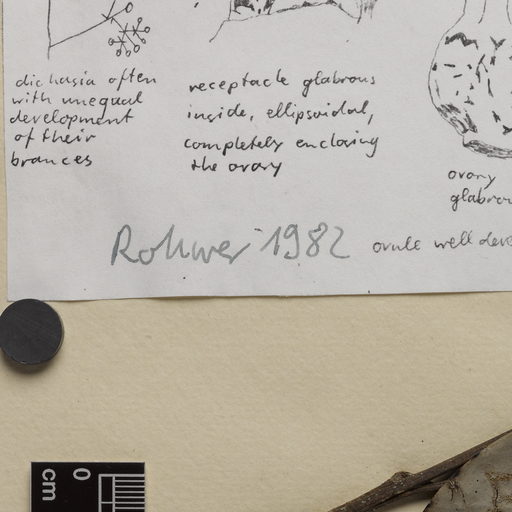 dichasia often
with unequal
development
of their
brances
receptacle glabrous
inside, ellipsoidal,
completely enclosing
the ovary
ovary
glabrou
Rohwer 1982
ovule well deve
0
cm